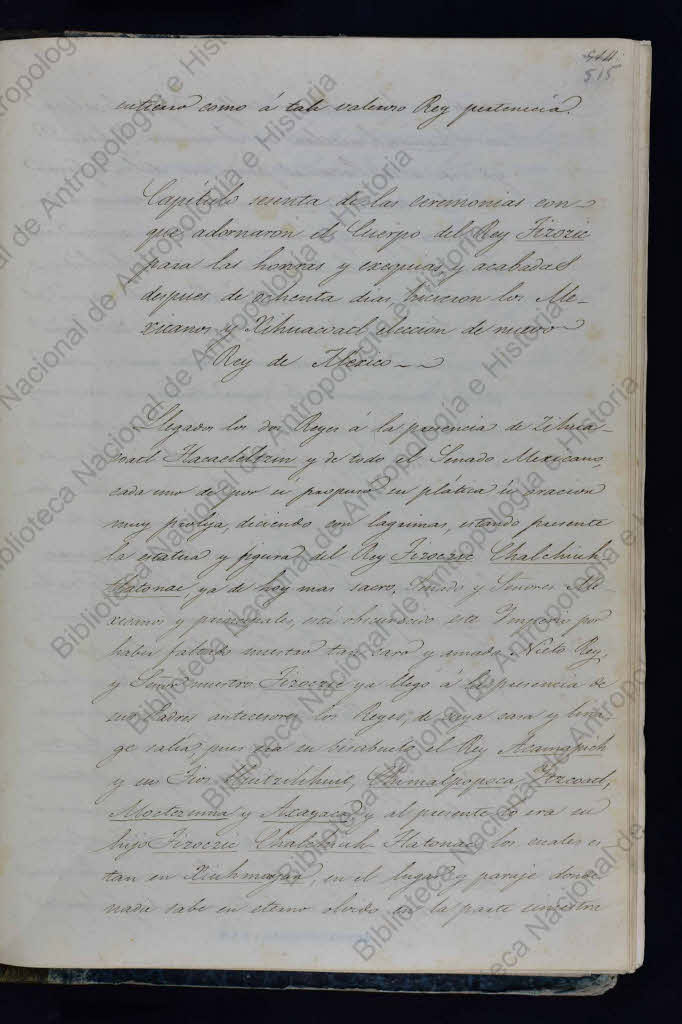 514
515
entierro como á tale valeroso Rey pertenecia.
Capítulo sesenta de las ceremonias con
que adornaron el Cuerpo del Rey Tizozic
para las honras y exequias, y acabadas
despues de ochenta dias, hicieron los Me-
xicanos y Zihuacoatl eleccion de nuevo
Rey de Mexico
Llegados los dos Reyes á la presencia de Zihua-
coatl Tlacaeleltzin y de todo el Senado Mexicano,
cada uno de por si propuso su plática ú oracion
muy prolija, diciendo con lagrimas, estando presente
la estatua y figura del Rey Tizoczic Chalchiuh
Tlatonac, ya de hoy mas sacro, Senado y Señores Me-
xicanos y principales, está obscurecido este Imperio por
haber faltado nuestro tan caro y amado Nieto Rey,
y Señor nuestro Tizoczic ya llegó á la presencia de
sus Padres antecesores los Reyes, de cuya casa y lina-
ge salia, pues era su bisabuelo el Rey Acamapich
y sus Tios Huitzilihuit, Chimalpopoca Itzcoatl,
Moctezuma y Axayaca, y al presente lo era su
hijo Tizoczic Chalchiuh Tlatonac los cuales es
tan en, en el lugar y paraje donde
nada sabe en eterno olvido en la parte siniestra
Biblioteca Nacional de Antropología e Historia